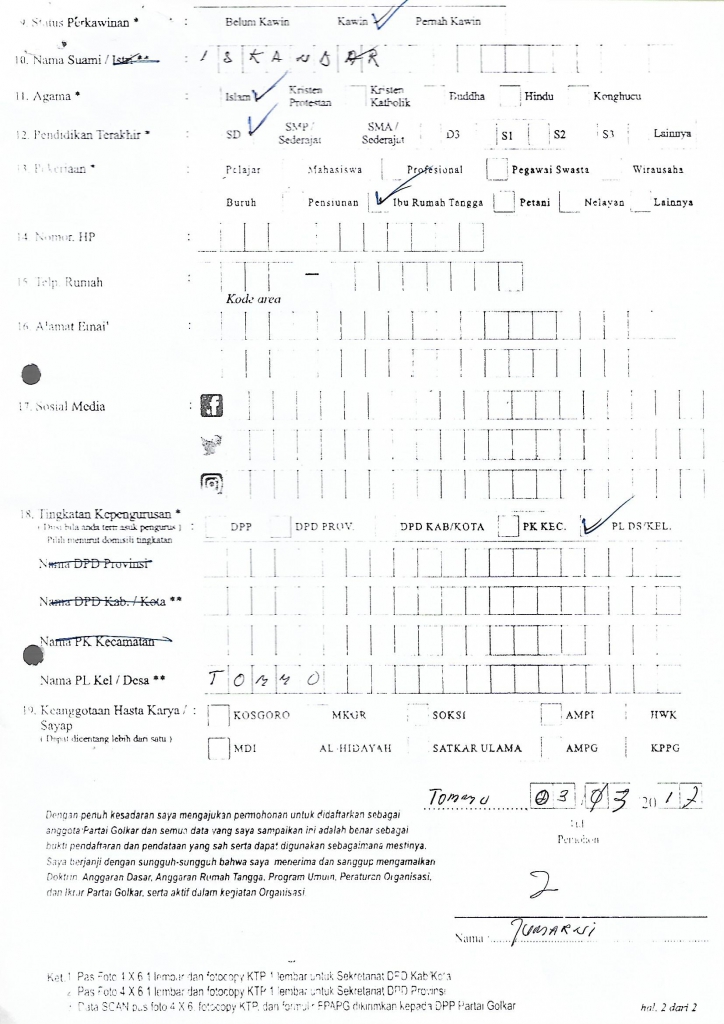 9. Status Perkawinan * : Belum Kawin Kawin Pernah Kawin
10. Nama Suami / Istri ** : I S K A N D A R
11. Agama * : Islam Kristen Protestan Kristen Katholik Buddha Hindu Konghucu
12. Pendidikan Terakhir * : SD SMP / Sederajat SMA / Sederajat D3 S1 S2 S3 Lainnya
13. Pekerjaan * : Pelajar Mahasiswa Profesional Pegawai Swasta Wirausaha
Buruh Pensiunan Ibu Rumah Tangga Petani Nelayan Lainnya
14. Nomor. HP :
15. Telp. Rumah : –
Kode area
16. Alamat Email :
17. Sosial Media :
18. Tingkatan Kepengurusan * : DPP DPD PROV. DPD KAB/KOTA PK KEC. PL DS/KEL.
( Diisi bila anda termasuk pengurus )
Pilih menurut domisili tingkatan
Nama DPD Provinsi
Nama DPD Kab. / Kota **
Nama PK Kecamatan
Nama PL Kel / Desa ** T O M M O
19. Keanggotaan Hasta Karya / Sayap : KOSGORO MKGR SOKSI AMPI HWK
( Dapat dicentang lebih dari satu ) MDI AL-HIDAYAH SATKAR ULAMA AMPG KPPG
03 / 03 2017
Dengan penuh kesadaran saya mengajukan permohonan untuk didaftarkan sebagai
anggota Partai Golkar dan semua data yang saya sampaikan ini adalah benar sebagai
bukti pendaftaran dan pendataan yang sah serta dapat digunakan sebagaimana mestinya.
Saya berjanji dengan sungguh-sungguh bahwa saya menerima dan sanggup mengamalkan
Doktrin, Anggaran Dasar, Anggaran Rumah Tangga, Program Umum, Peraturan Organisasi,
dan Ikrar Partai Golkar, serta aktif dalam kegiatan Organisasi.
Ttd
Pemohon
Nama :
Ket. 1. Pas Foto 4 X 6 1 lembar dan fotocopy KTP 1 lembar untuk Sekretariat DPD Kab/Kota
2. Pas Foto 4 X 6 1 lembar dan fotocopy KTP 1 lembar untuk Sekretariat DPD Provinsi
3. Data SCAN pas foto 4 X 6, fotocopy KTP, dan formulir FPAPG dikirimkan kepada DPP Partai Golkar
hal. 2 dari 2